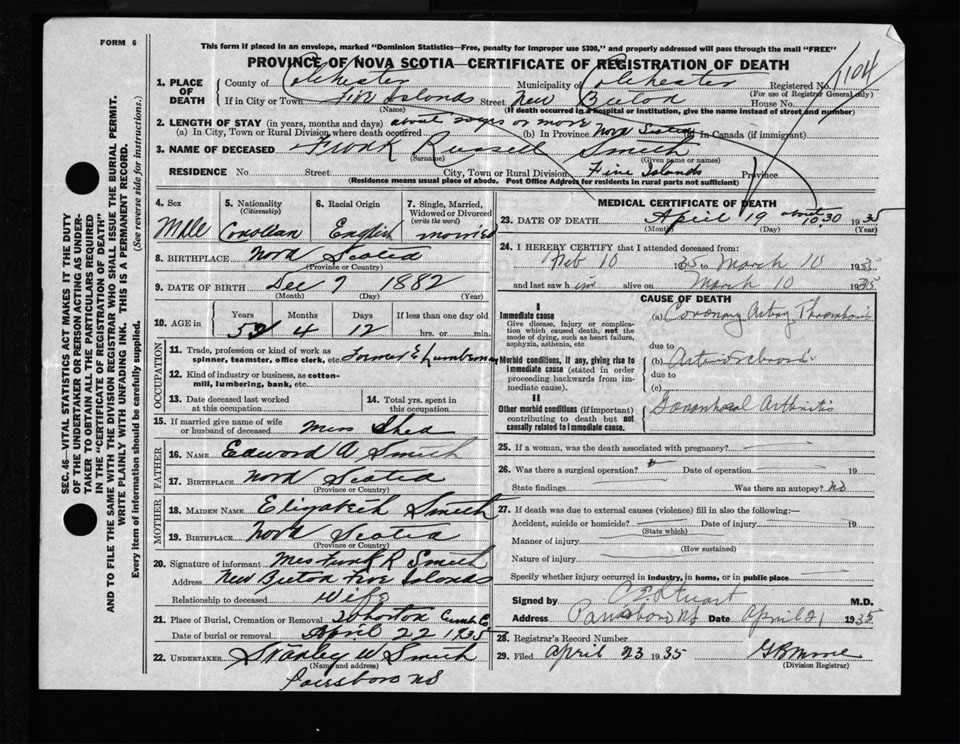 FORM 6
This form if placed in an envelope, marked "Dominion Statistics—Free, penalty for improper use $300," and properly addressed will pass through the mail "FREE"
PROVINCE OF NOVA SCOTIA—CERTIFICATE OF REGISTRATION OF DEATH
1. PLACE OF DEATH
County of Colchester Municipality of Colchester Registered No. 1104
(For use of Registrar General only)
If in City or Town Five Islands Street New Britain House No.
(Name) (If death occurred in a hospital or institution, give the name instead of street and number)
2. LENGTH OF STAY (in years, months and days) about 20 yrs or more
(a) In City, Town or Rural Division where death occurred (b) In Province Nova Scotia In Canada (if immigrant)
3. NAME OF DECEASED Frank Russell Smith
(Surname) (Given name or names)
RESIDENCE No. Street City, Town or Rural Division Five Islands Province
(Residence means usual place of abode. Post Office Address for residents in rural parts not sufficient)
4. Sex Male
5. Nationality (Citizenship) Canadian
6. Racial Origin English
7. Single, Married, Widowed or Divorced (write the word) married
8. BIRTHPLACE Nova Scotia
(Province or Country)
9. DATE OF BIRTH Dec 7 1882
(Month) (Day) (Year)
10. AGE in Years Months Days If less than one day old
52 4 12 hrs. or min.
OCCUPATION
11. Trade, profession or kind of work as spinner, teamster, office clerk, etc. Farmer & Lumberman
12. Kind of industry or business, as cotton-mill, lumbering, bank, etc.
13. Date deceased last worked at this occupation
14. Total yrs. spent in this occupation
15. If married give name of wife or husband of deceased Miss Shea
FATHER
16. NAME Edward A Smith
17. BIRTHPLACE Nova Scotia
(Province or Country)
MOTHER
18. MAIDEN NAME Elizabeth Smith
19. BIRTHPLACE Nova Scotia
(Province or Country)
20. Signature of informant Mrs Frank R Smith
Address New Britain Five Islands
Relationship to deceased wife
21. Place of Burial, Cremation or Removal Wharton Cumb Co
Date of burial or removal April 22 1935
22. UNDERTAKER Stanley W Smith
(Name and address)
Parrsboro NS
MEDICAL CERTIFICATE OF DEATH
23. DATE OF DEATH April 19 about 10.30 1935
(Month) (Day) (Year)
24. I HEREBY CERTIFY that I attended deceased from:
Feb 10 1935 to March 10 1935
and last saw him alive on March 10 1935
CAUSE OF DEATH
I
Immediate cause
Give disease, injury or complication which caused death, not the mode of dying, such as heart failure, asphyxia, asthenia, etc
(a) Coronary Artery Thrombosis
due to
Morbid conditions, if any, giving rise to immediate cause (stated in order proceeding backwards from immediate cause).
(b)
due to
(c)
II
Other morbid conditions (if important) contributing to death but not causally related to immediate cause.
Gonorrhoeal Arthritis
25. If a woman, was the death associated with pregnancy?
26. Was there a surgical operation? Date of operation 19
State findings Was there an autopsy? no
27. If death was due to external causes (violence) fill in also the following:—
Accident, suicide or homicide? Date of injury 19
(State which)
Manner of injury
(How sustained)
Nature of injury
Specify whether injury occurred in industry, in home, or in public place
Signed by C E Stuart M.D.
Address Parrsboro NS Date April 21 1935
28. Registrar's Record Number
29. Filed April 23 1935
(Division Registrar)
SEC. 46—VITAL STATISTICS ACT MAKES IT THE DUTY
OF THE UNDERTAKER OR PERSON ACTING AS UNDER-
TAKER TO OBTAIN ALL THE PARTICULARS REQUIRED
IN THE "CERTIFICATE OF REGISTRATION OF DEATH"
AND TO FILE THE SAME WITH THE DIVISION REGISTRAR WHO SHALL ISSUE THE BURIAL PERMIT.
WRITE PLAINLY WITH UNFADING INK. THIS IS A PERMANENT RECORD.
Every item of information should be carefully supplied. (See reverse side for instructions.)